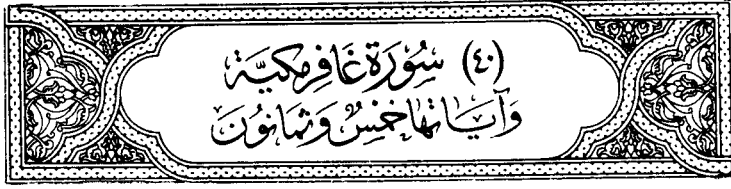 (٤٠) سُورَة غَافِر مَكيَّة
وَآيَاتهَا خَمْسٌ وَثَمَانُونَ